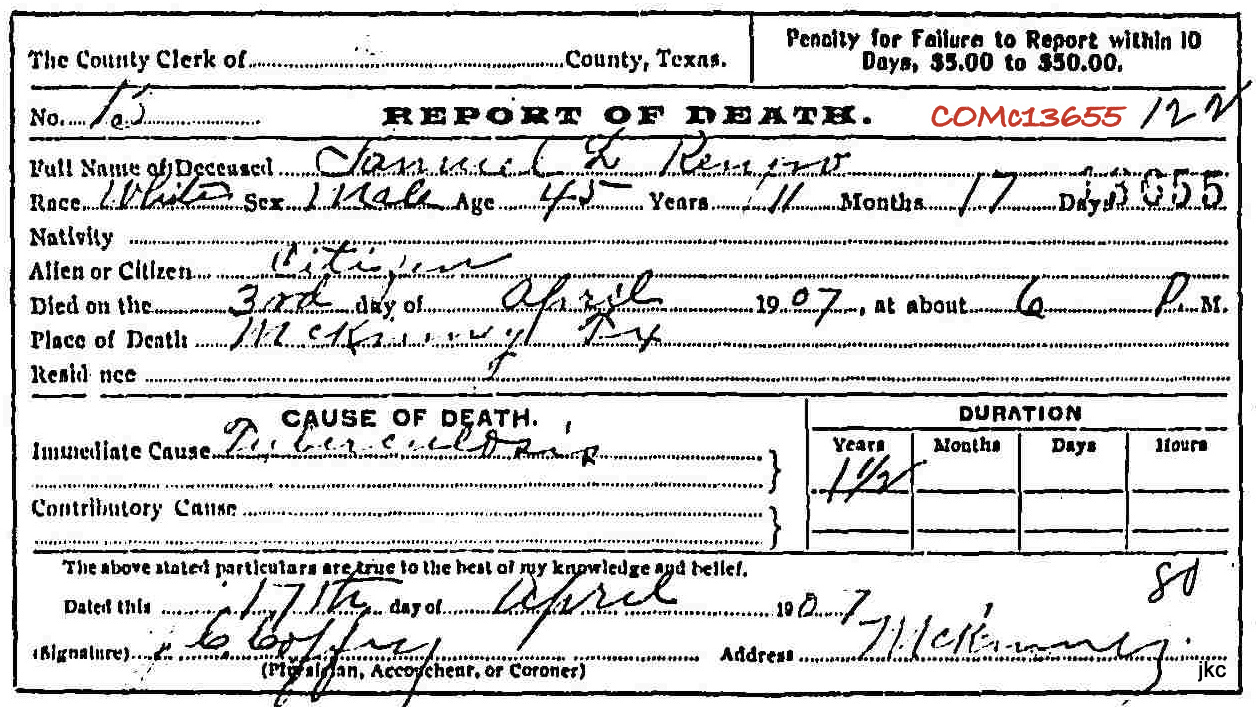 The County Clerk of County, Texas.
Penalty for Failure to Report within 10
Days, $5.00 to $50.00.
No. REPORT OF DEATH. COMc13655 122
Full Name of Deceased Samuel L
Race White Sex Male Age 45 Years 11 Months 17 Days 13655
Nativity
Alien or Citizen Citizen
Died on the 3rd day of April 1907, at about 6 P. M.
Place of Death McKinney Tx
Resid nce
CAUSE OF DEATH.
DURATION
Years Months Days Hours
Immediate Cause Tuberculosis
1 1/2
Contributory Cause
The above stated particulars are true to the best of my knowledge and belief.
80
Dated this 17th day of April 1907
(Signature) Address McKinney.
(Physician, Accoucheur, or Coroner)
jkc